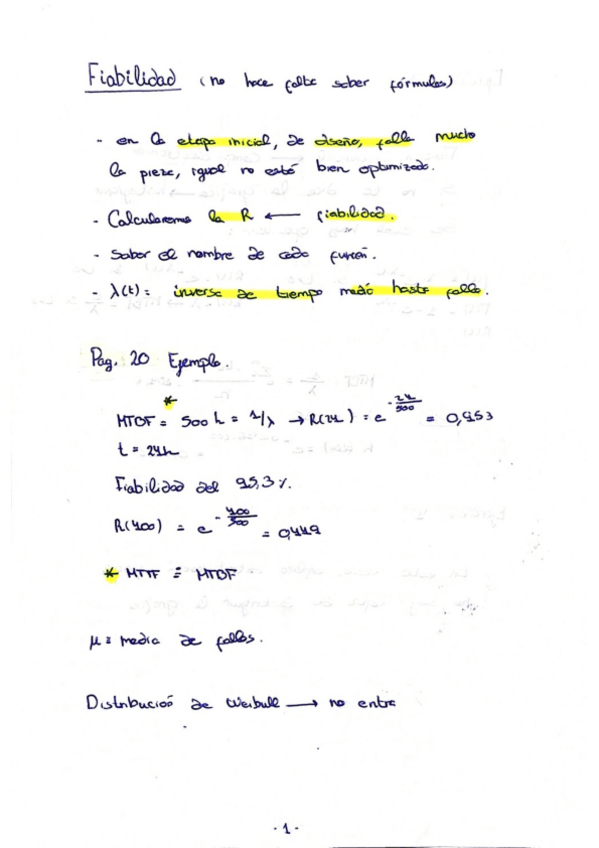 Fiabilidad (no hace falta saber fórmulas)
- en la etapa inicial, de diseño, falla mucho
la pieza, igual no está bien optimizado.
- Calcularemos la R ← fiabilidad.
- Saber el nombre de cada función.
- λ(t): inversa de tiempo medio hasta fallo.
Pag. 20 Ejemplo.
*
MTOF = 500 h = 1/λ → R(24) = e^-24/500 = 0,953
t = 24h
Fiabilidad del 95,3 %.
R(400) = e^-400/500 = 0,449
* MTTF ≡ MTOF
μ = media de fallos.
Distribució de Weibull → no entra
- 1 -